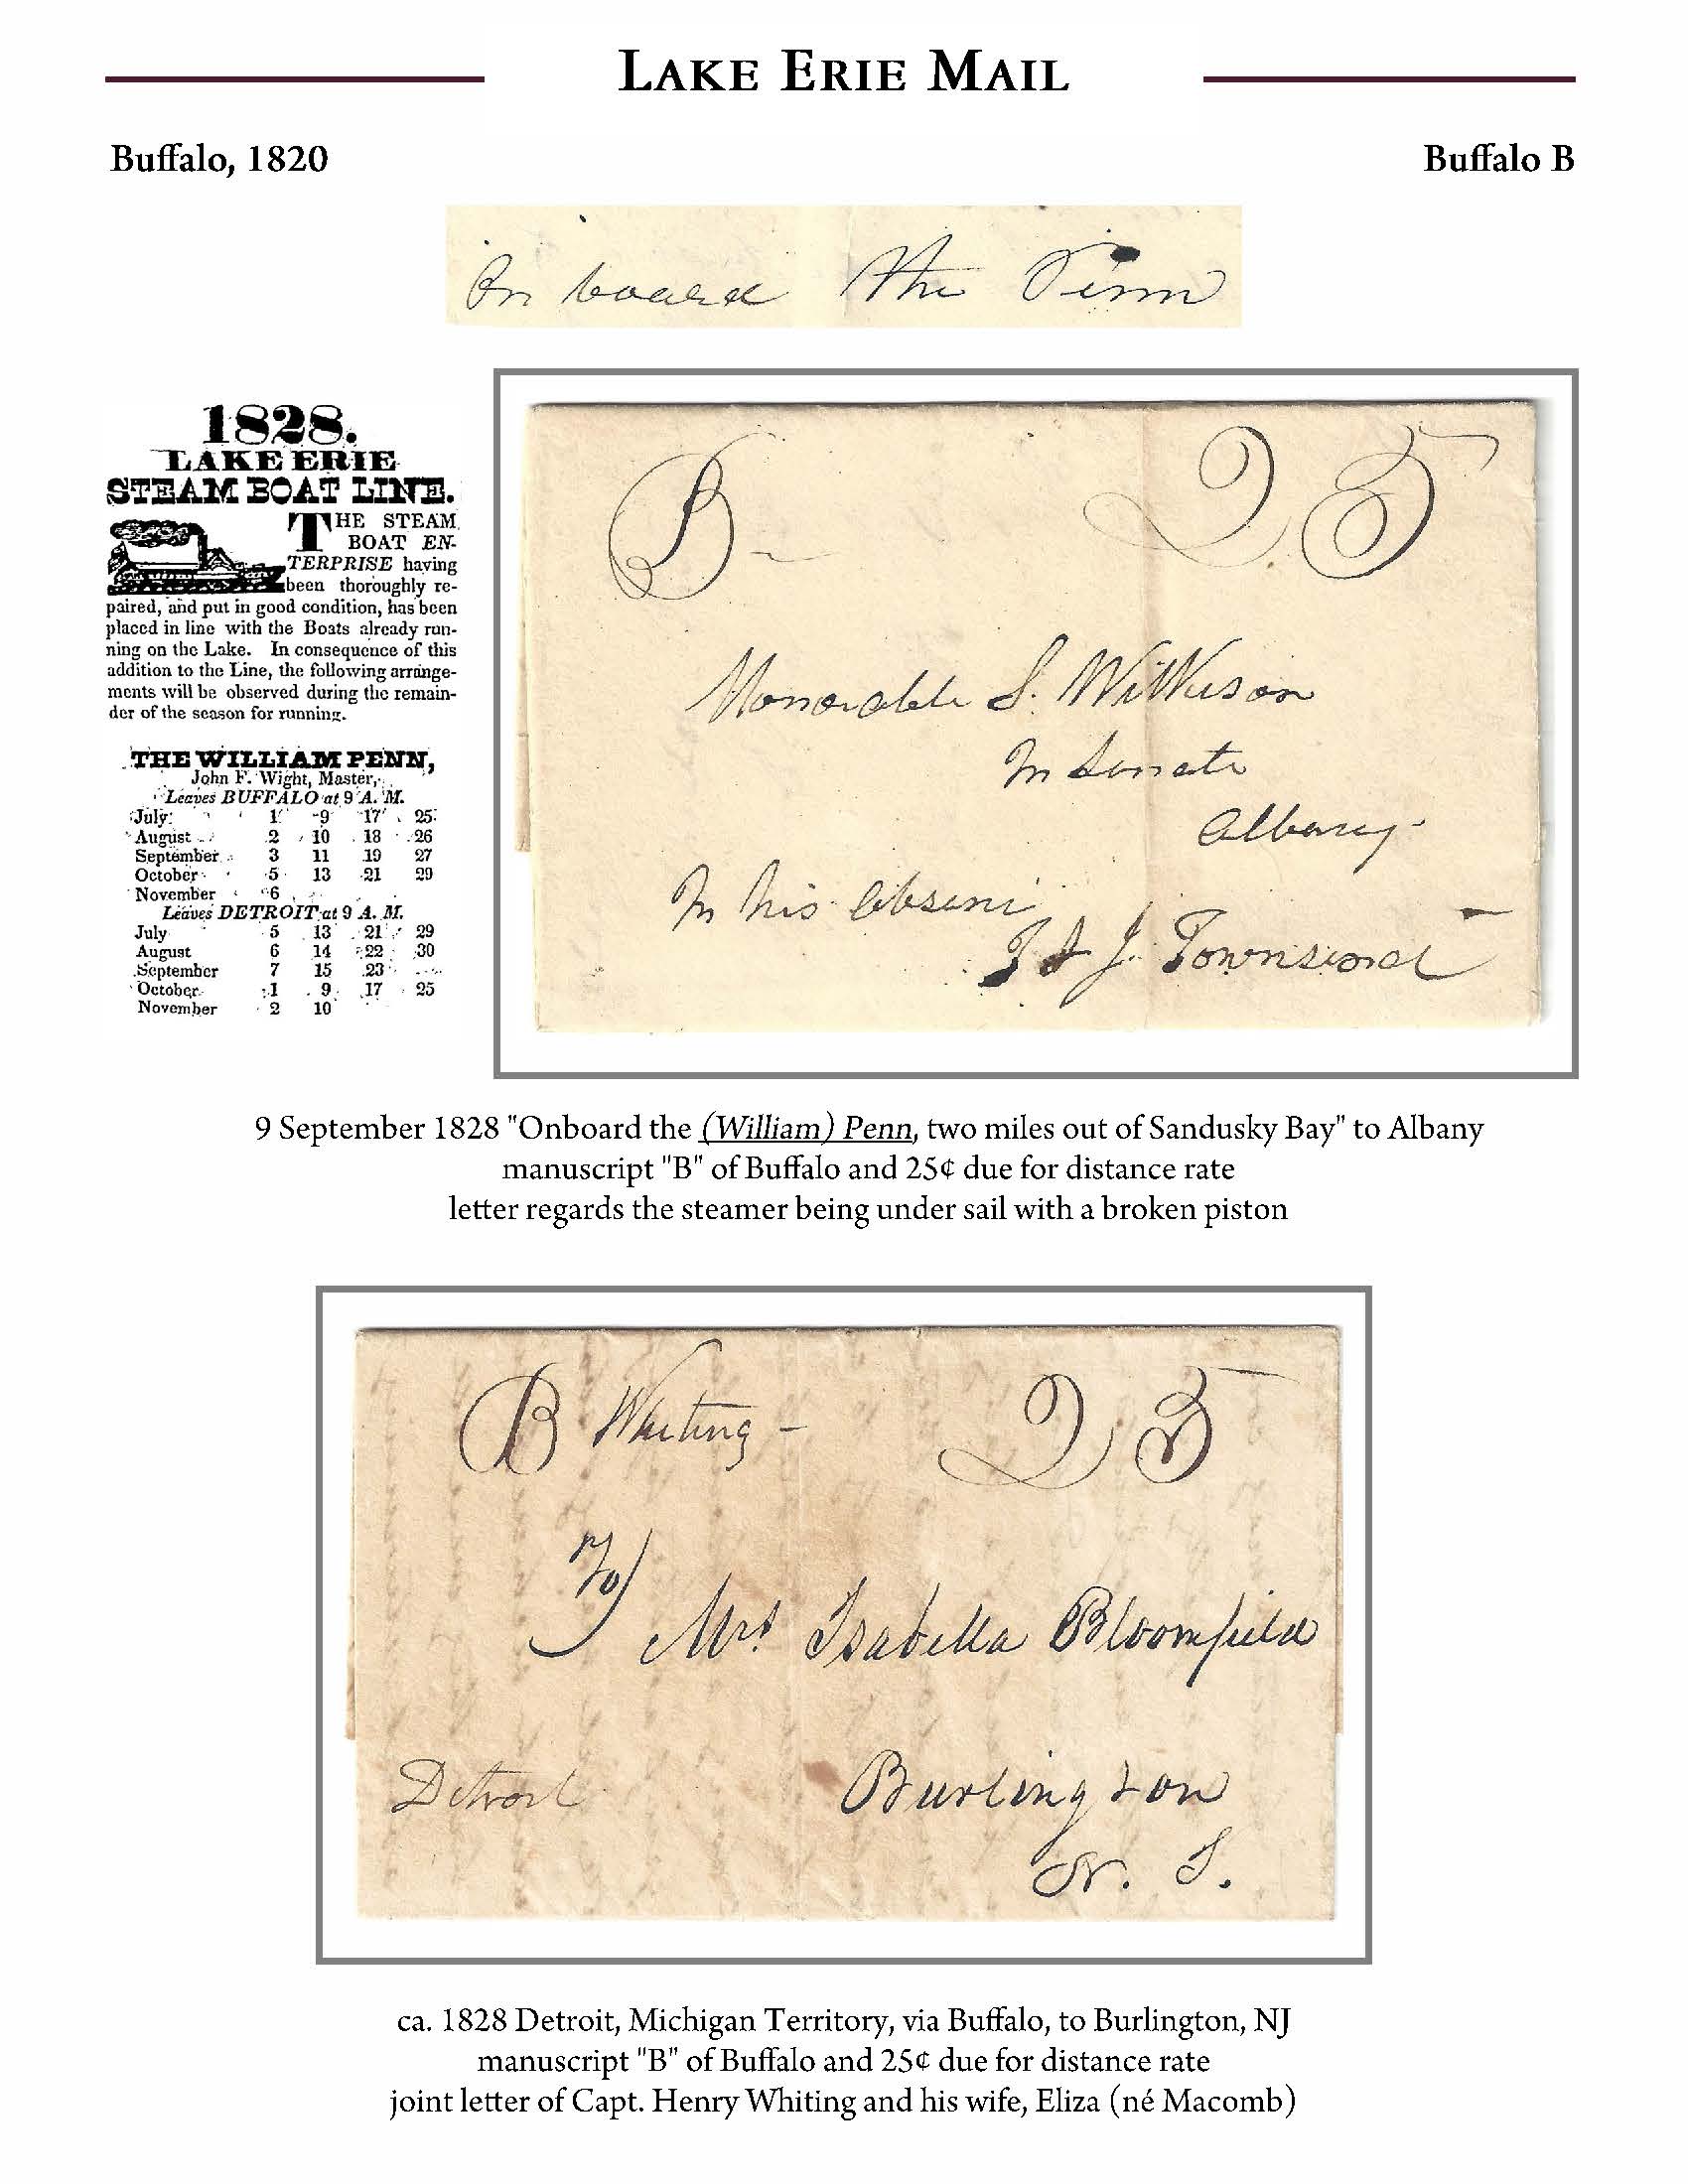 LAKE ERIE MAIL
Buffalo, 1820
Buffalo B
On board the Penn
1828.
LAKE ERIE
STEAM BOAT LINE.
THE STEAM
BOAT EN-
TERPRISE having
been thoroughly re-
paired, and put in good condition, has been
placed in line with the Boats already run-
ning on the Lake. In consequence of this
addition to the Line, the following arrange-
ments will be observed during the remain-
der of the season for running.
THE WILLIAM PENN,
John F. Wight, Master,
Leaves BUFFALO at 9 A. M.
July 1 9 17 25
August 2 10 18 26
September 3 11 19 27
October 5 13 21 29
November 6
Leaves DETROIT at 9 A. M.
July 5 13 21 29
August 6 14 22 30
September 7 15 23
October 1 9 17 25
November 2 10
B 25
Honorable S. Wilkison
In Senate
Albany
In his absence
I & J. Townsend
9 September 1828 "Onboard the (William) Penn, two miles out of Sandusky Bay" to Albany
manuscript "B" of Buffalo and 25¢ due for distance rate
letter regards the steamer being under sail with a broken piston
B Whiting - 25
To
Mrs Isabella Bloomfield
Detroit
Burlington
N. J.
ca. 1828 Detroit, Michigan Territory, via Buffalo, to Burlington, NJ
manuscript "B" of Buffalo and 25¢ due for distance rate
joint letter of Capt. Henry Whiting and his wife, Eliza (né Macomb)